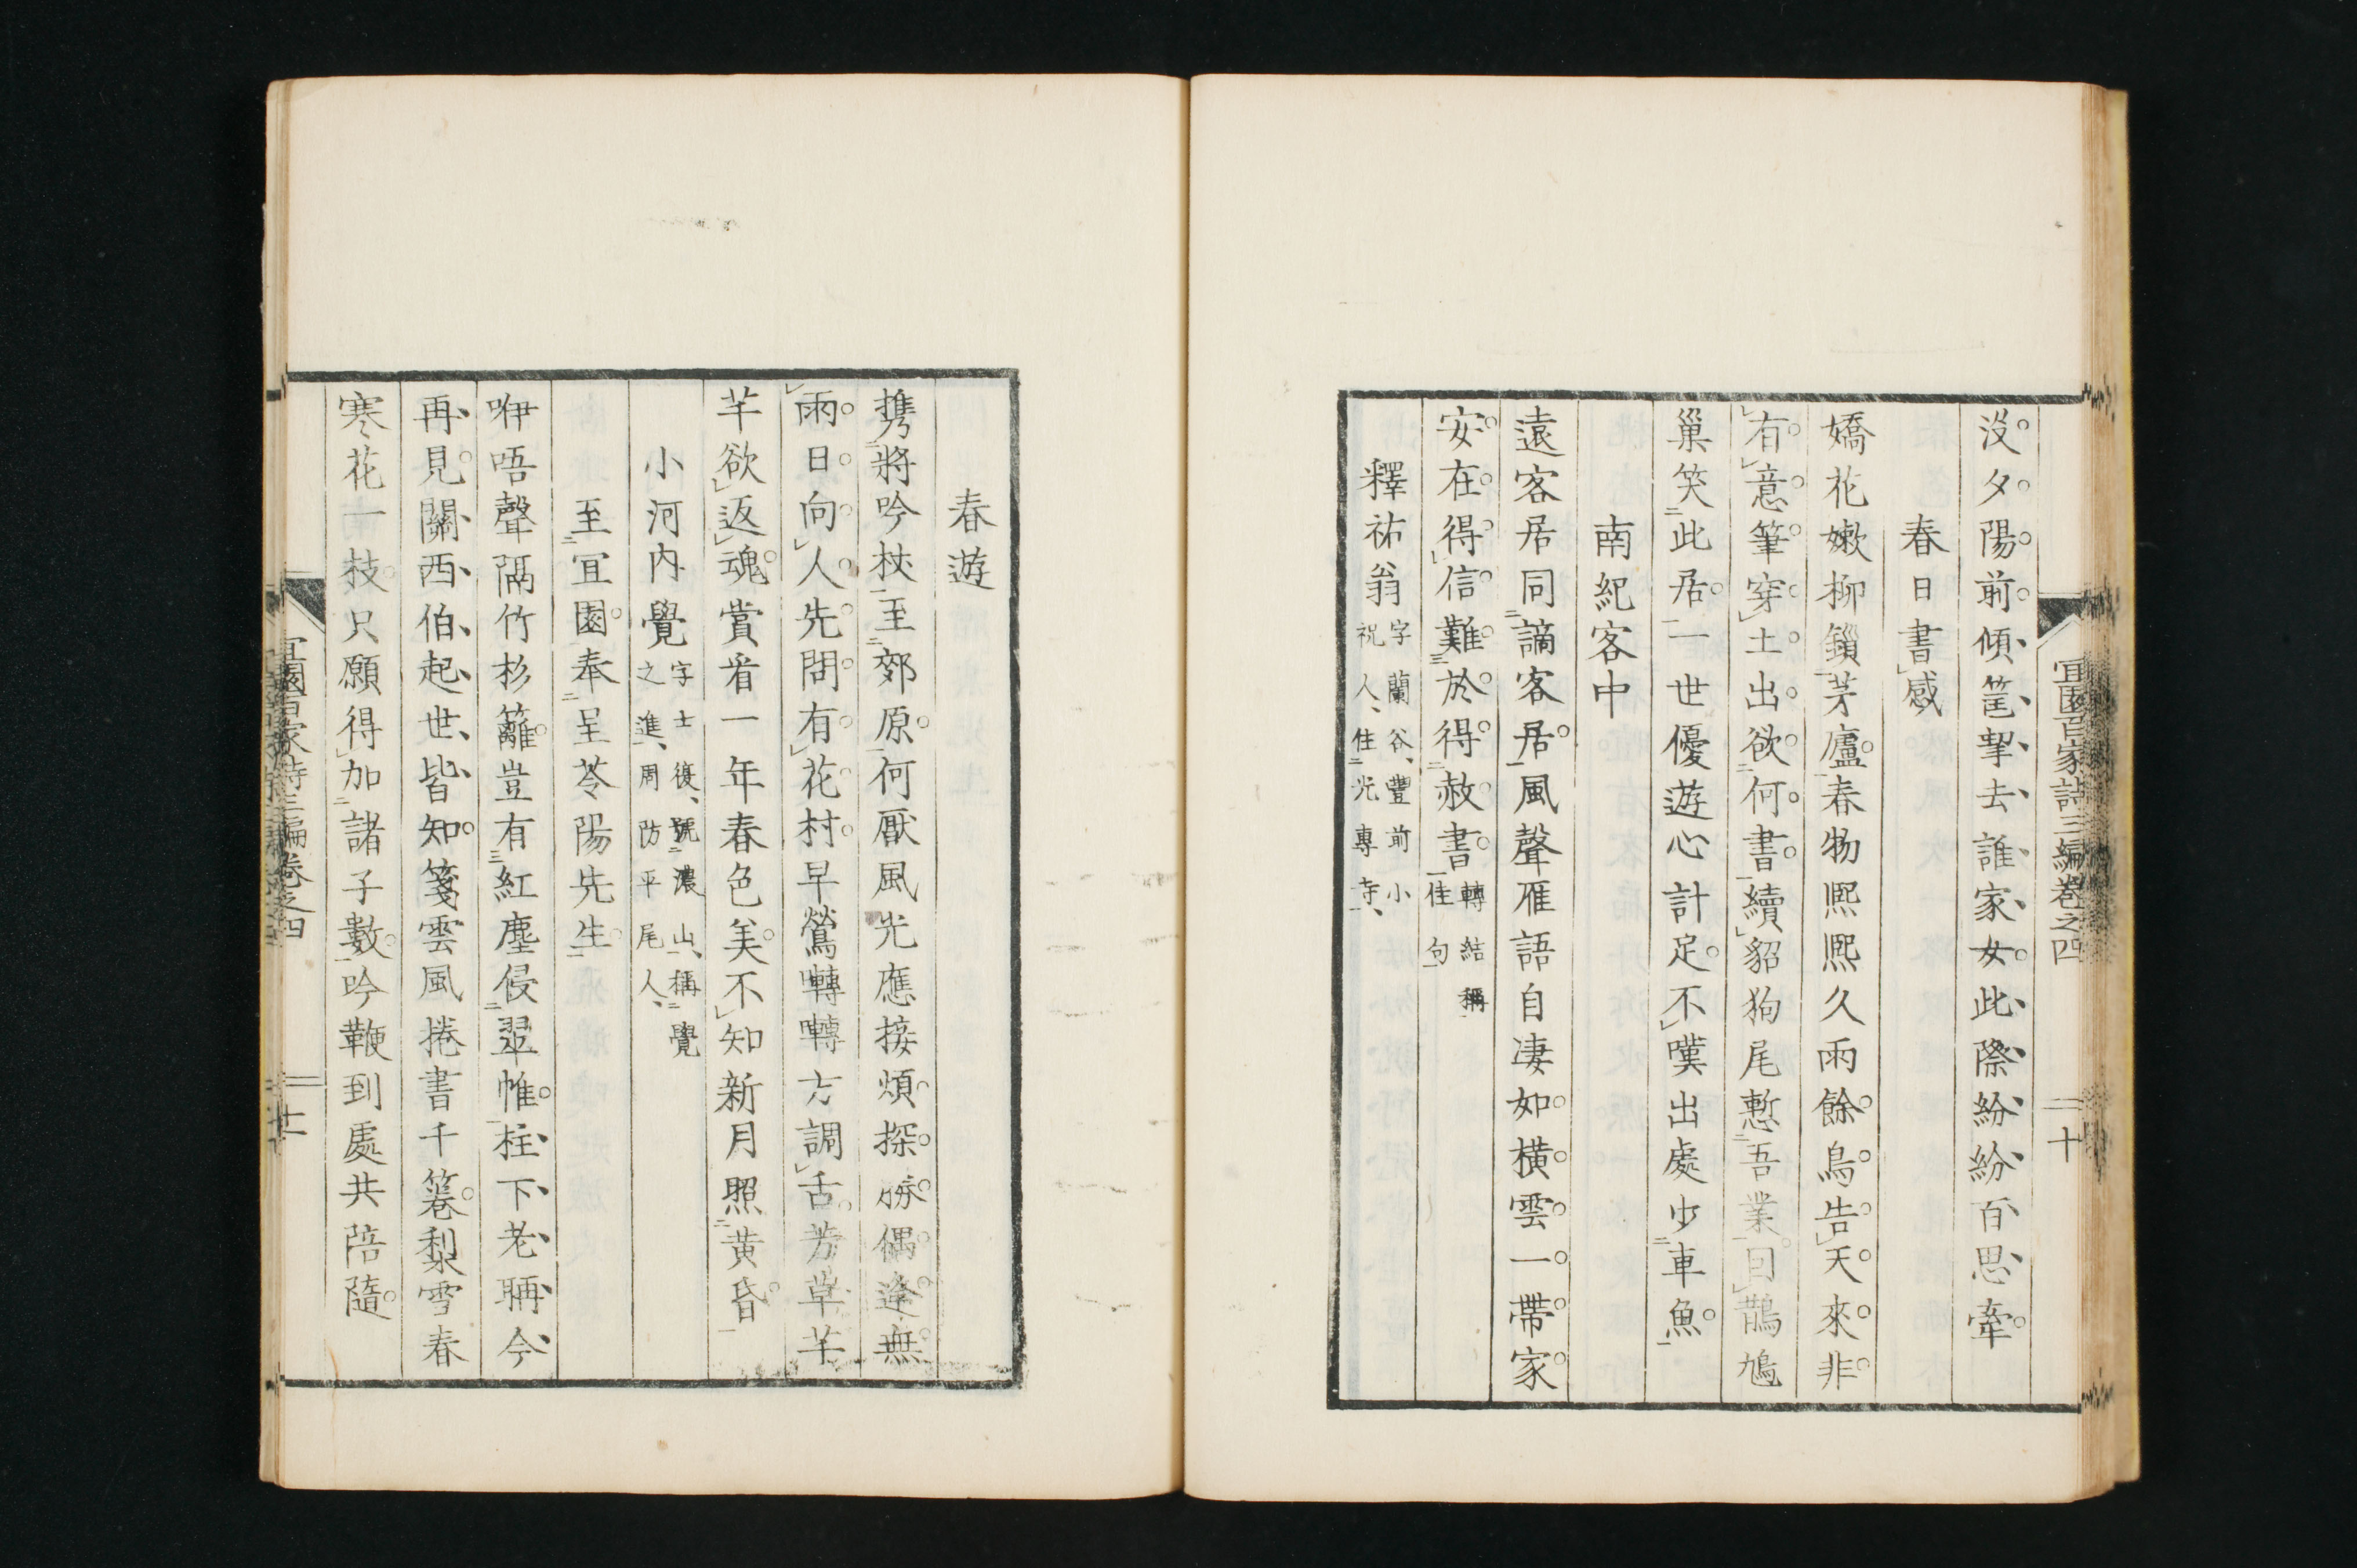 宜園百家詩三編卷之四
十
沒夕陽前傾筐挈去誰家女此際紛紛百思牽
春日書感
嬌花嫩柳鎖茅廬春物熈熈久雨餘鳥告天來非
有意筆穿土出欲何書續貂狗尾慙吾業回鵲鳩
巢笑此居一世優遊心計足不嘆出處少車魚
南紀客中
遠客居同謫客居風聲雁語自凄如橫雲一帶家
安在得信難於得赦書轉結稱佳句
釋祐翁字蘭谷、豐前小祝人、住光專寺、
春遊
携將吟杖至郊原何厭風光應接煩探勝偶逢無
雨日向人先問有花村早鶯囀囀方調舌芳草芊
芊欲返魂賞看一年春色美不知新月照黃昏
小河內覺字士復、號濃山、稱覺之進、周防平尾人、
至宜園奉呈苓陽先生
咿唔聲隔竹杉籬豈有紅塵侵翠帷柱下老聃今
再見關西伯起世皆知箋雲風捲書千簏梨雪春
寒花一枝只願得加諸子數吟鞭到處共陪隨
宜園百家詩三編卷之四